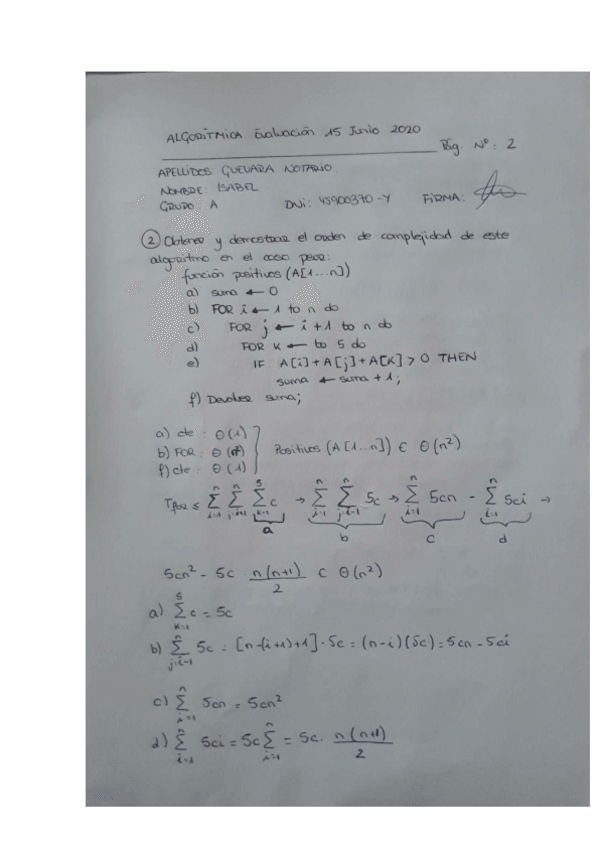 ALGORÍTMICA Evaluación 15 Junio 2020
Pág. Nº: 2
APELLIDOS: GUEVARA NOTARIO
NOMBRE: ISABEL
GRUPO: A DNi: 45900370-Y FiRMA:
② Obtener y demostrar el orden de complejidad de este
algoritmo en el caso peor:
función positivos (A[1...n])
a) suma ← 0
b) FOR i ← 1 to n do
c) FOR j ← i+1 to n do
d) FOR K ← to 5 do
e) IF A[i]+A[j]+A[K] > 0 THEN
suma ← suma + 1;
f) Devolver suma;
a) cte : Θ(1)
b) FOR : Θ
f) cte : Θ(1)
Positivos (A[1...n]) ∈ Θ(n²)
T_for ≤ Σ_{i=1}^{n} Σ_{j=i+1}^{n} Σ_{k=1}^{5} c → Σ_{i=1}^{n} Σ_{j=i-1}^{n} 5c → Σ_{i=1}^{n} 5cn - Σ_{i=1}^{n} 5ci →
a b c d
5cn² - 5c n(n+1)/2 ∈ Θ(n²)
a) Σ_{k=1}^{5} c = 5c
b) Σ_{j=i-1}^{n} 5c = [n-(i+1)+1]·5c = (n-i)(5c) = 5cn - 5ci
c) Σ_{i=1}^{n} 5cn = 5cn²
d) Σ_{i=1}^{n} 5ci = 5c Σ_{i=1}^{n} = 5c · n(n+1)/2